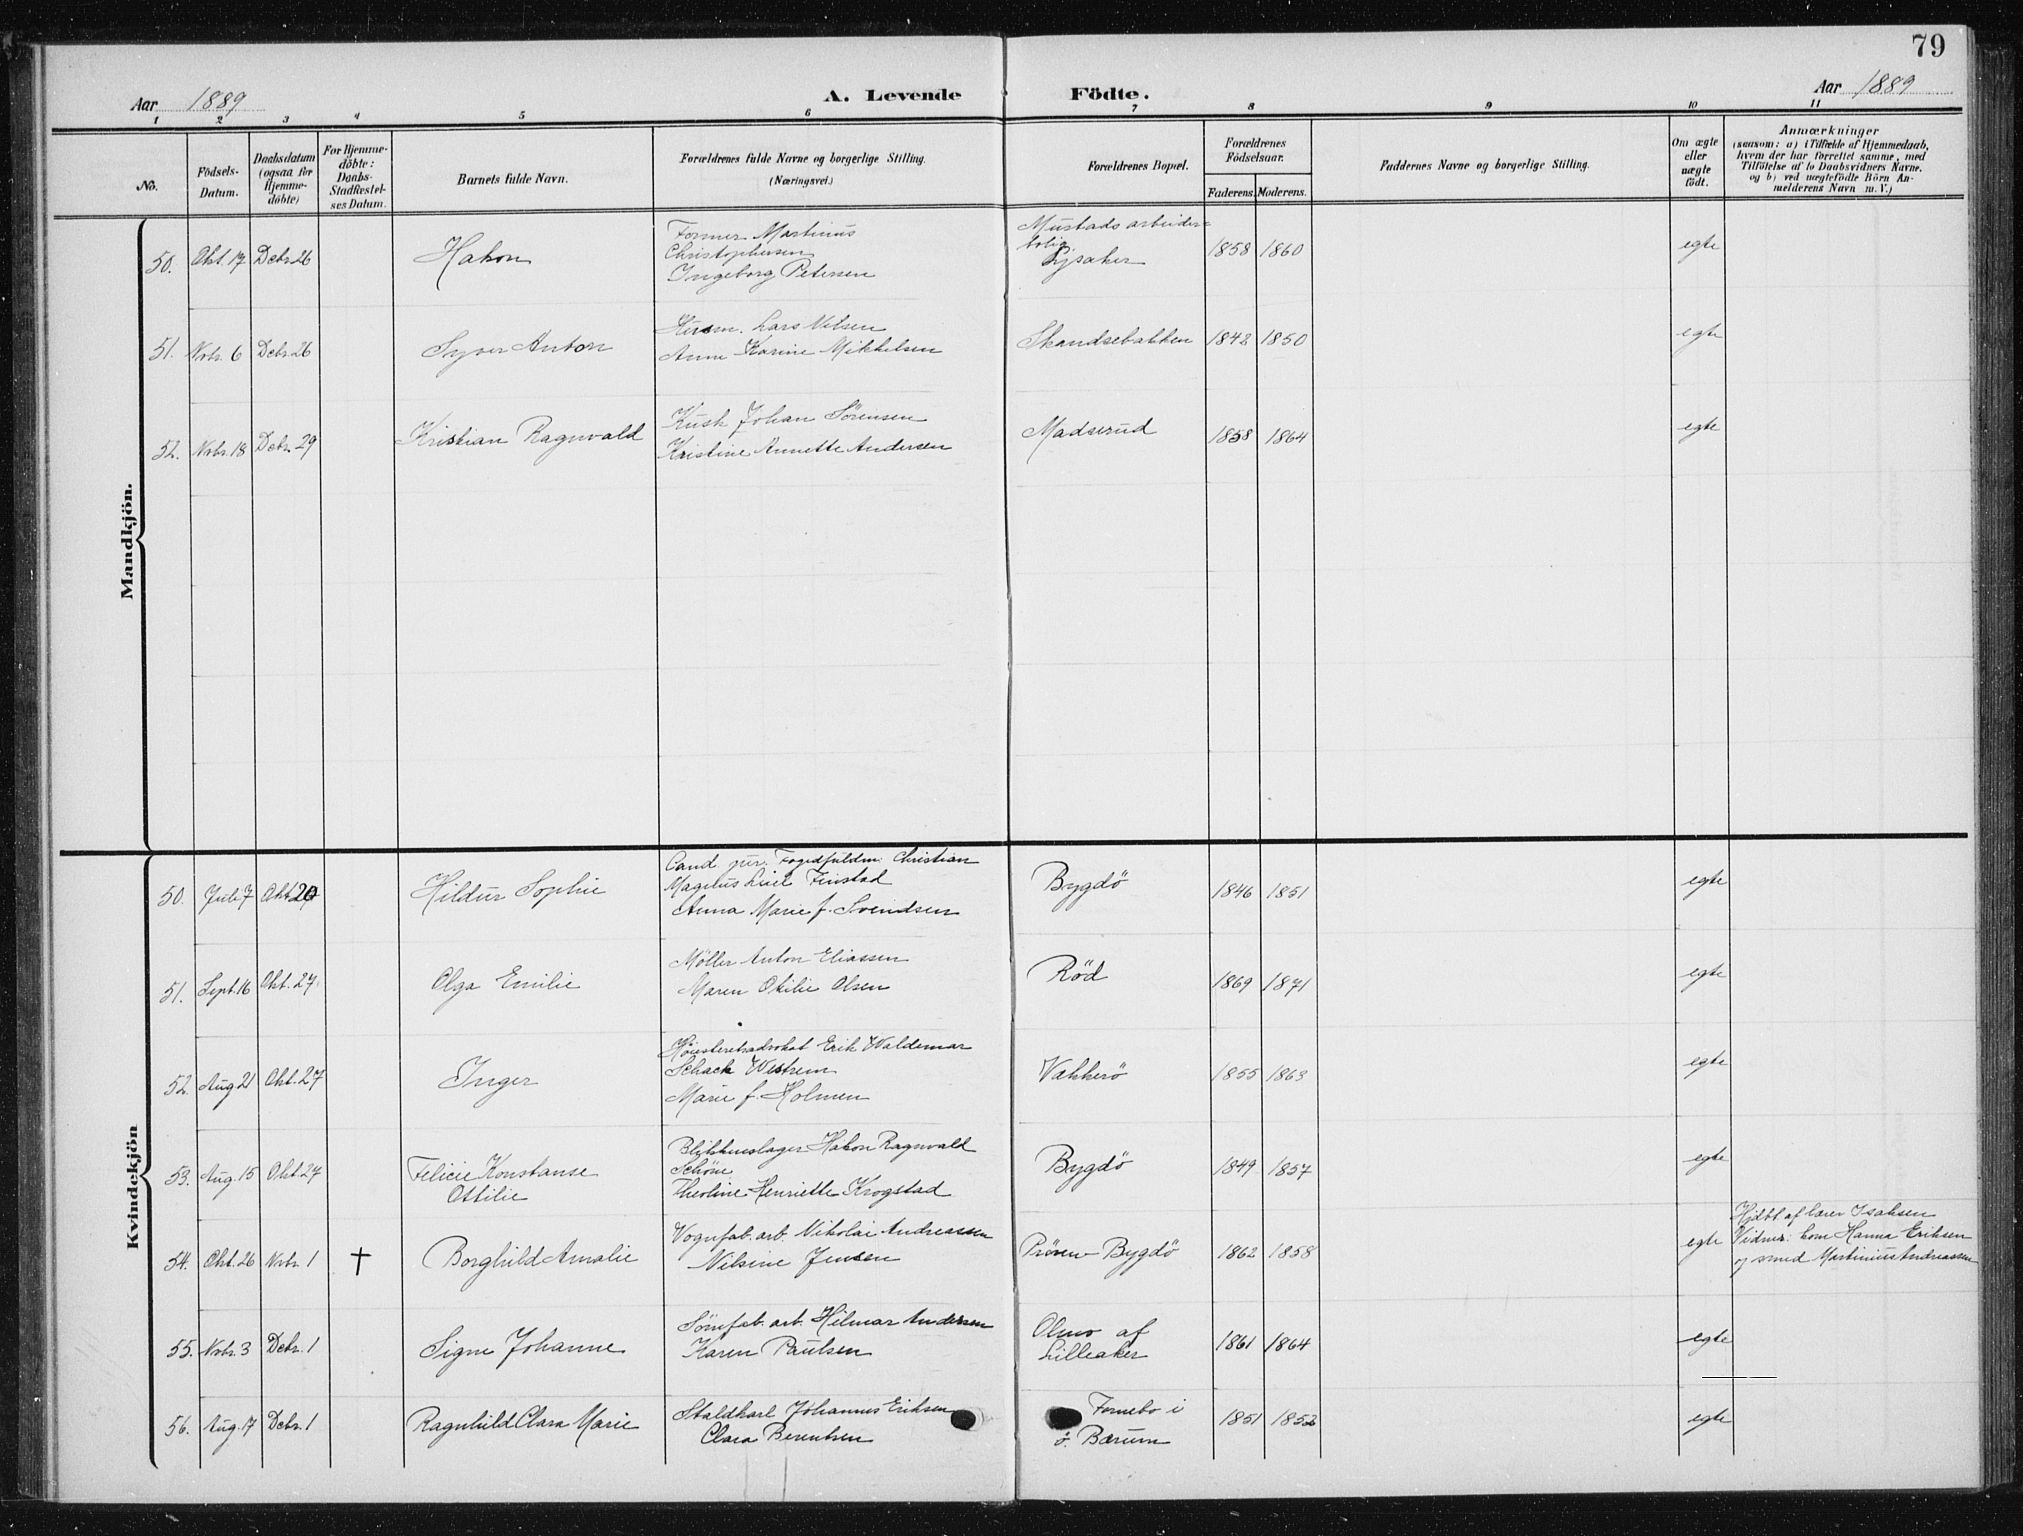 79
Aar 1889
A. Levende Födte.
Aar 1889
1 2 3 4 5 6 7 8 9 10 11
No.
Födsels-
Datum.
Daabsdatum
(ogsaa for
Hjemme-
döbte)
For Hjemme-
döbte:
Daabs-
Stadfæstel-
ses Datum.
Barnets fulde Navn.
Forældrenes fulde Navne og borgerlige Stilling.
(Næringsvei.)
Forældrenes Bopæl.
Forældrenes
Födselsaar.
Faderens. Moderens.
Faddernes Navne og borgerlige Stilling.
Om ægte
eller
uægte
født.
Anmærkninger
(saasom: a) i Tilfælde af Hjemmedaab,
hvem der har forrettet samme, med
Tilföielse af to Daabsvidners Navne,
og b) ved uægtefödte Börn An-
melderens Navn m. V.)
Mandkjön.
50. Okt. 17 Debr. 26 Hakon
Former Martinus
Christophersen
Ingeborg Petersen
Mustads arbeider-
bolig
Lysaker
1858 1860 egte
51. Nvbr. 6 Debr. 26 Syver Anton
Husm. Lars Nilsen
Anne Karine Mikkelsen
Skandsebakken 1842 1850 egte
52. Nvbr. 18 Debr. 29 Kristian Ragnvald
Kusk Johan Sørensen
Kristine Annette Andersen
Madserud 1858 1864 egte
Kvindekjön
50. Juli 7 Okt 20 Hildur Sophie
Cand. jur. Fogedfuldm. Christian
Magnus Finstad
Anna Marie f. Svendsen
Bygdö 1846 1851 egte
51. Sept. 16 Okt. 27. Olga Emilie
Møller Anton Eliassen
Maren Otilie Olsen
Rød 1869 1871 egte
52. Aug 21 Okt. 27 Inger
Høiesteretsadvokat Erik Waldemar
Schack Westrem
Marie f. Holmen
Vækkerö 1855 1863 egte
53. Aug. 15 Okt. 27 Felicie Konstanse
Ottilie
Blikkenslager Hakon Ragnvald
Schöne
Theoline Henriette Krogstad
Bygdö 1849 1857 egte
54. Okt. 26 Nvbr. 1 † Borghild Amalie
Vognfab. arb. Nikolai Andreassen
Nilsine Jensen
Prøven- Bygdö 1862 1858 egte
Hjdbt af lærer Isaksen
Vidner: kom Hanna Eriksen
og smed Martinius Andreassen
55. Nvbr. 3 Debr. 1 Signe Johanne
Sømfab. arb. Hilmar Andersen
Karen Paulsen
af
Lilleaker
1861 1864 egte
56. Aug. 17 Debr. 1 Ragnhild Clara Marie
Staldkarl Johannes Eriksen
Clara Berentsen
Fornebo i
ö. Bærum
1851 1852 egte